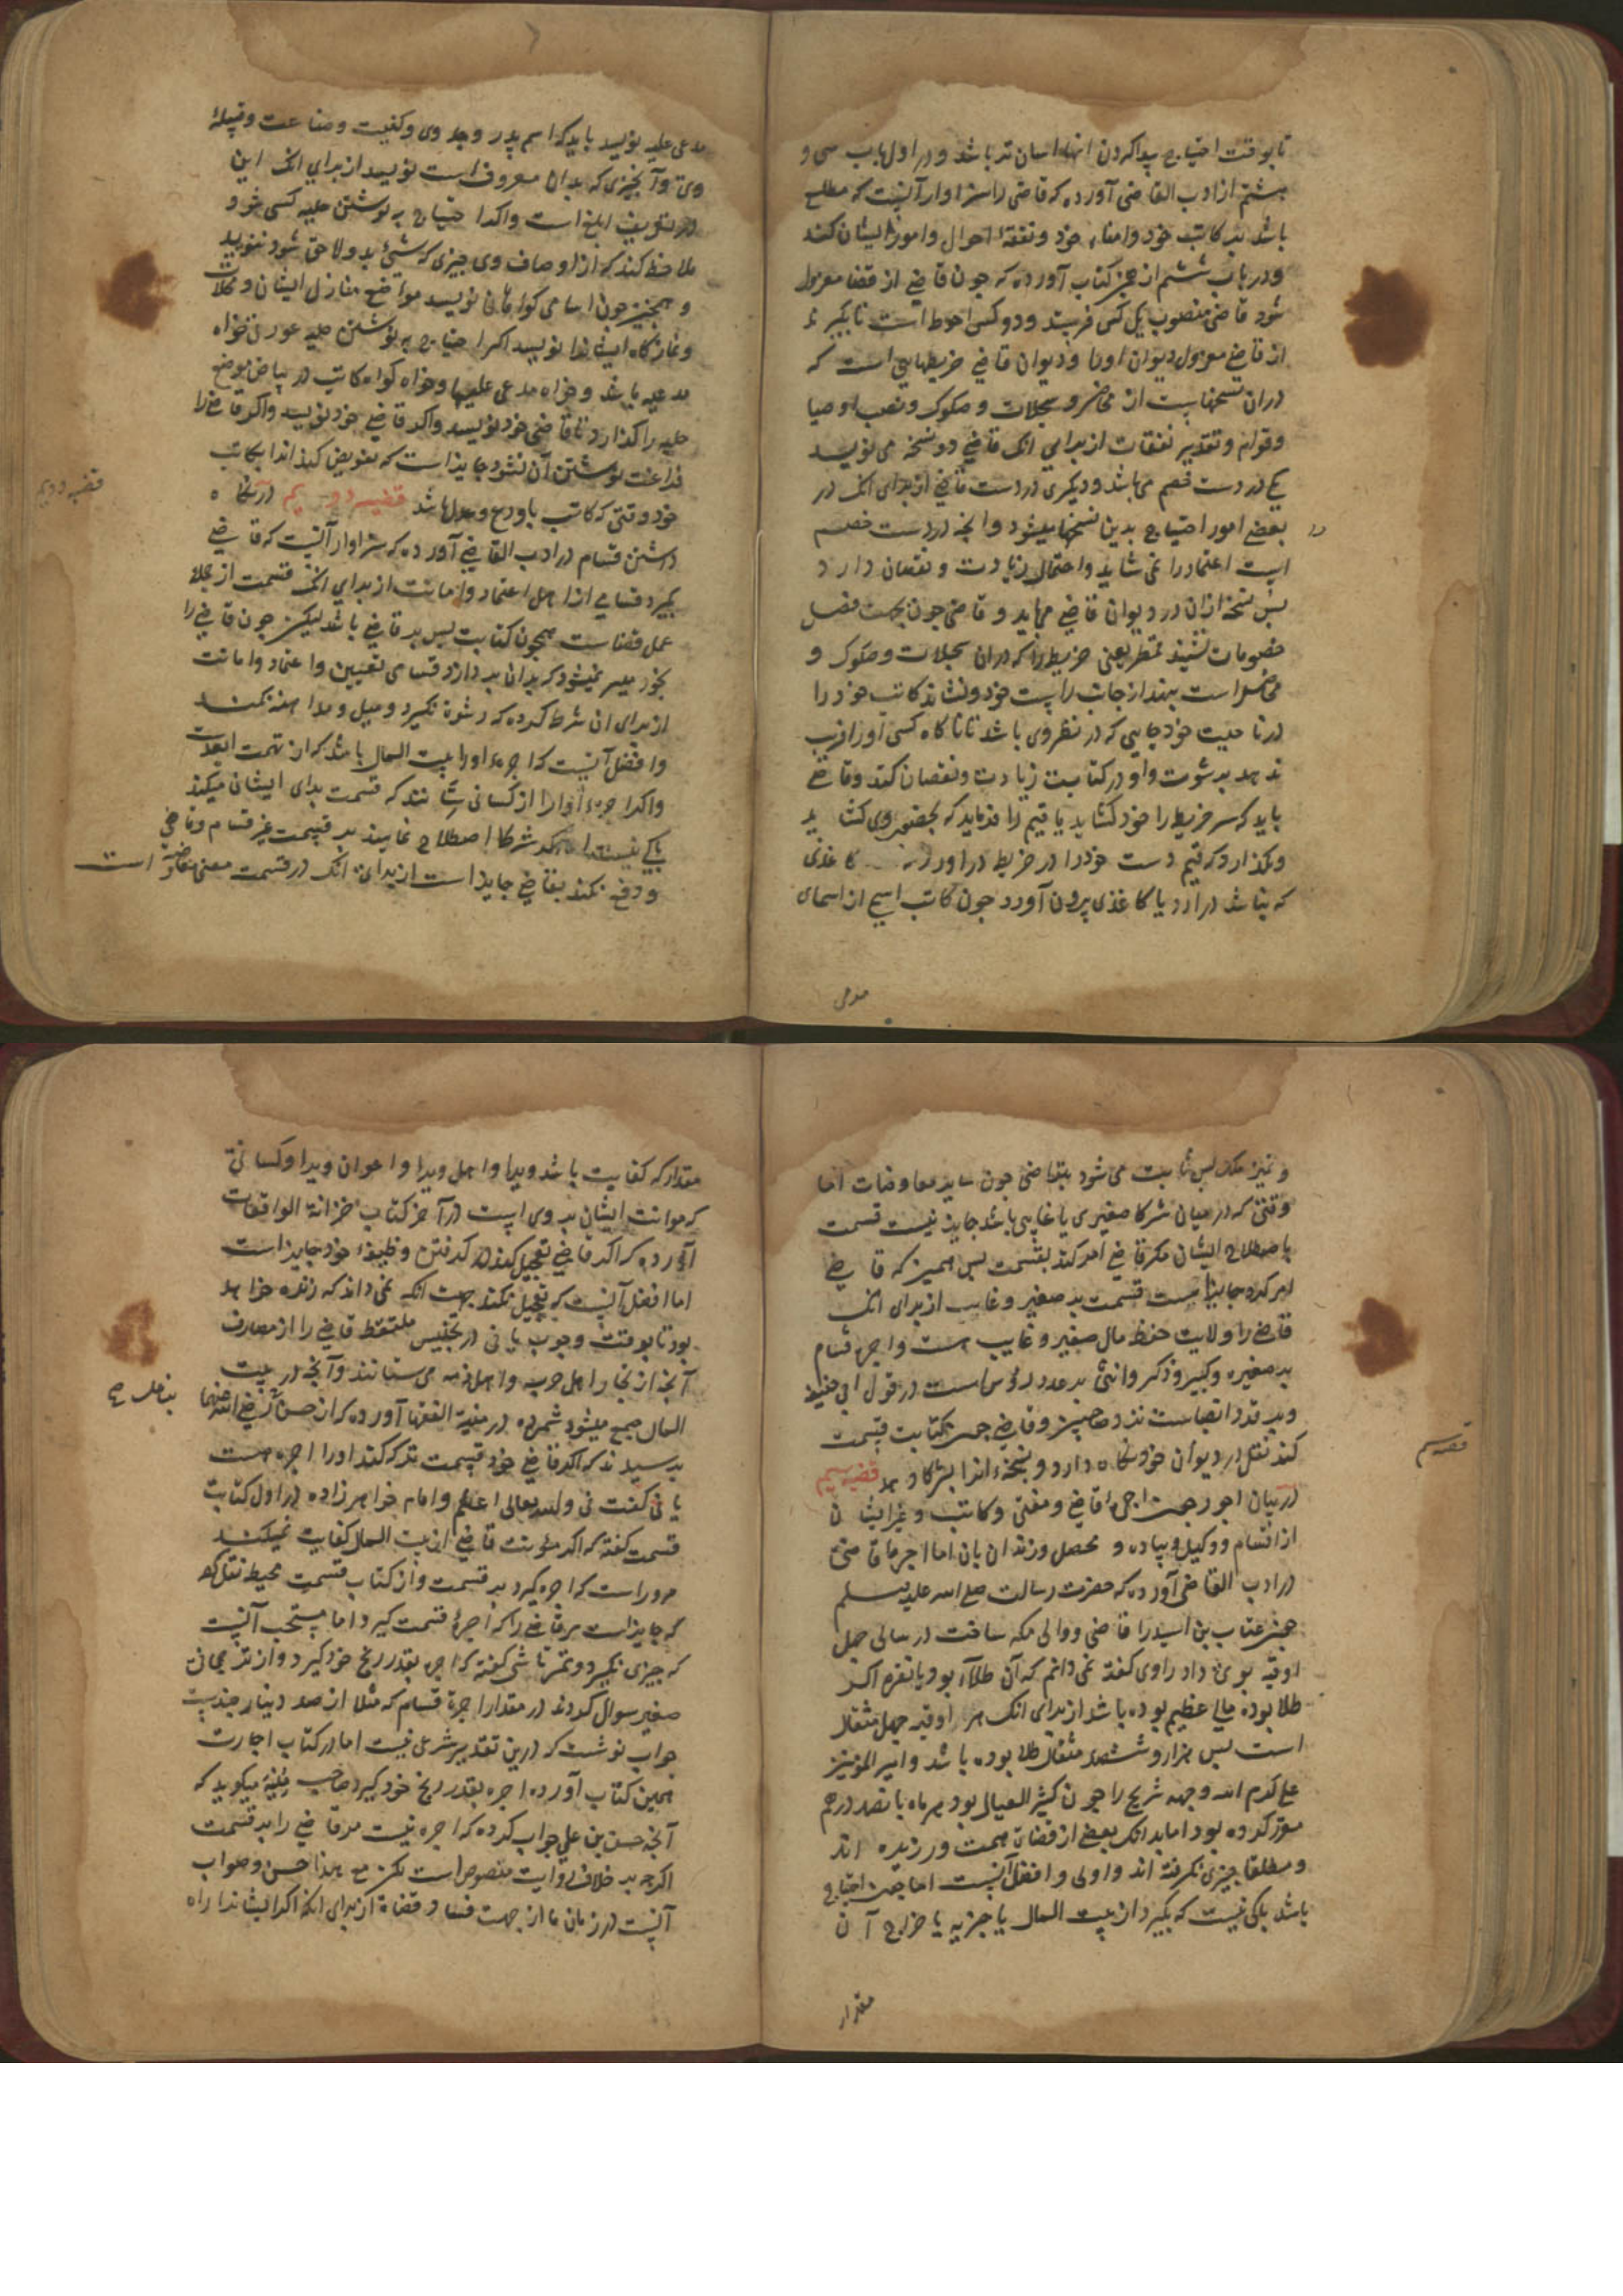 تا بوقت احتیاج پیدا کردن آنها اسان تر باشد و در اول باب سی و
هشتم از ادب القاضی آورده که قاضی را سزاوار آنست که مطلع
باشد بر کاتب خود و امناء خود و تفقد احوال و امور ایشان کند
و در باب ششم از همین کتاب آورده که چون قاضی از قضا معزول
شود قاضی منصوب یک کس فرستد و دو کس احوط است تا بگیرند
از قاضی معزول دیوان او را و دیوان قاضی خریطهایی است که
دران نسخهاست از محاضر و سجلات و صکوک و نصب اوصیا
و قوام و تقدیر نفقات از برای انک قاضی دو نسخه می نویسد
یکی در دست خصم می باشد و دیکری در دست قاضی از برای انک در
بعضی امور احتیاج بدین نسخها میشود و انچه در دست خصم
است اعتماد را نمی شاید و احتمال زیادت و نقصان دارد
پس نسخه ازان در دیوان قاضی می باید و قاضی چون بجهت فصل
خصومات نشیند قمطر یعنی خریطه را که دران سجلات و صکوک و
محاضر است بنهد از جانب راست خود و نشاند کاتب خود را
در ناحیت خود جایی که در نظر وی باشد تا ناکاه کسی او را فریب
ندهد برشوت و او در کتابت زیادت و نقصان کند و قاضی
باید که سر خریطه را خود کشاید یا قیم را فرماید که بحضور وی کشاید
و نکذارد که قیم دست خود را در خریطه در آورد کاغذی
که نباشد در آرد یا کاغذی برون آورد چون کاتب اسمی از اسمای
مدعی
مدعی علیه نویسد باید که اسم پدر و جد وی و کنیت و صناعت و قبیلهٔ
وی و آنچیزی که بدان معروف است نویسد از برای انک این
در تعریف ابلغ است و اکر احتیاج به نوشتن حلیه کسی شود
ملاحظه کند که از اوصاف وی چیزی که شینی بد و لاحق شود ننویسد
و همچنین چون اسامی کواهان نویسد مواضع منازل ایشان و محلات
و نماز کاه ایشانرا نویسد اکر احتیاج به نوشتن حلیه عورتی خواه
مدعیه باشد و خواه مدعی علیها و خواه کواه کاتب در بیاض موضع
حلیه را کذارد تا قاضی خود نویسد و اکر قاضی خود نویسد واکر قاضی را
فراغت نوشتن آن نشود جایز است که تفویض کند انرا بکاتب
خود وقتی که کاتب با ورع و عدل باشد قضیه دویم در نکاه
قضیه دویم
داشتن قسام در ادب القاضی آورده که سزاوار آنست که قاضی
بگیرد قسامی از اهل اعتماد و امانت از برای انک قسمت از جملهٔ
عمل قضاست همچون کتابت پس بر قاضی باشد لیکن چون قاضی را
بخود میسر نمیشود که بدان پردازد قسامی تعیین و اعتماد و امانت
از برای ان شرط کرده که رشوة نکیرد و میل و مداهنه نکند
و افضل آنست که اجرة او را بیت المال باشد که از تهمت ابعد است
و اکر اجرة او را از کسانی ستانند که قسمت برای ایشان میکند
باکی نیست و اکر شرکا اصطلاح نمایند بر قسمت غیر قسام قاضی
و رفع نکند بقاضی جایز است از برای انک در قسمت معنی معاوضه است
و نیز ملک پس ثابت می شود بتراضی چون سایر معاوضات اما
وقتی که در میان شرکا صغیری یا غایبی باشد جایز نیست قسمت
باصطلاح ایشان مکر قاضی امر کند بقسمت پس همین که قاضی
امر کرد جایز است قسمت بر صغیر و غایب از برای انک
قاضی را ولایت حفظ مال صغیر و غایب هست و اجرة قسام
بر صغیر و کبیر و ذکر و انثی بر عدد رؤس است در قول ابی حنیفه
و بر قدر انصباست نزد صاحبین و قاضی چون کتابت قسمت
کند نقل در دیوان خود نکاه دارد و نسخهٔ انرا بشرکا دهد قضیه سیم
قضیه سیم
در بیان اجور جهت اجر قاضی و مفتی و کاتب و غیر ایشان
از قسام و وکیل و پیاده و محصل و زندان بان اما اجر قاضی
در ادب القاضی آورده که حضرت رسالت صلی الله علیه وسلم
چون عتاب بن اسید را قاضی و والی مکه ساخت در سالی چهل
اوقیه بوی داد راوی کفته نمی دانم که آن طلا بود یا نقره اکر
طلا بوده مالی عظیم بوده باشد از برای انک هر اوقیه چهل مثقال
است پس هزار و ششصد مثقال طلا بوده باشد و امیر المؤمنین
علی کرم الله وجهه شریح را چون کثیر العیال بود هر ماه پانصد درهم
مقرر کرده بود اما بدانک بعضی از قضات همت ورزیده اند
و مطلقا چیزی نکرفته اند و اولی و افضل آنست اما چون احتیاج
باشد باکی نیست که بکیرد از بیت المال یا جزیه یا خراج آن
مقدار
مقدار که کفایت باشد ویرا و اهل ویرا و اعوان ویرا و کسانی
که موانت ایشان بر وی است در آخر کتاب خزانة الواقعات
آورده که اکر قاضی تعجیل کند در کرفتن وظیفهٔ خود جایز است
اما افضل آنست که تعجیل نکند جهت انکه نمی داند که زنده خواهد
بود تا بوقت وجوب یا نی در تجنیس ملتقط قاضی را از مصارف
آنچه از تجار اهل حرب و اهل ذمه می ستانند و آنچه در بیت
المال جمع میشود شمرده در منیة الفقها آورده که از حسن بن علی رضی الله عنهما
بن علی صح
پرسیدند که اکر قاضی خود قسمت ترکه کند او را اجره هست
یا نی کفت نی والله تعالی اعلم و امام خواهرزاده در اول کتاب
قسمت کفته که اکر مؤنت قاضی از بیت المال کفایت نمیکند
مر او راست که اجره کیرد بر قسمت و از کتاب قسمت محیط نقل کرده
که جایز است مر قاضی را که اجرة قسمت کیرد اما مستحب آنست
که چیزی نکیرد و تمرتاشی کفته که اجره بقدر رنج خود کیرد و از ترجمانی
صغیر سوال کردند در مقدار اجرة قسام که مثلا از صد دینار چندست
جواب نوشت که درین تقدیر شرعی نیست اما در کتاب اجارت
همین کتاب آورده اجره بقدر رنج خود کیرد صاحب منیه میکوید که
آنچه حسن بن علی جواب کرده که اجره نیست مر قاضی را بر قسمت
اکرچه بر خلاف روایت منصوص است لکن مع هذا حسن و صواب
آنست در زمان ما از جهت فساد قضاة از برای انک اکر ایشانرا راه